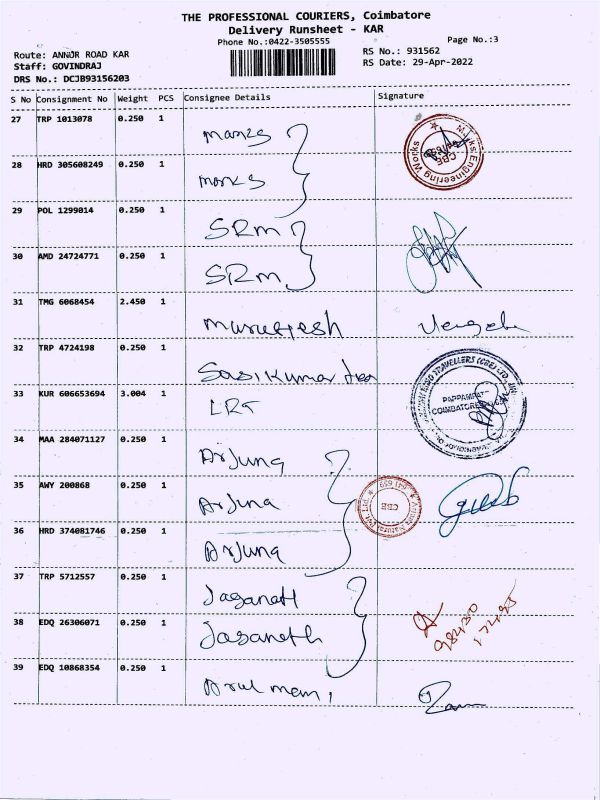 THE PROFESSIONAL COURIERS, Coimbatore
Delivery Runsheet - KAR
Phone No.:0422-3505555
Page No.:3
Route: ANNUR ROAD KAR
RS No.: 931562
Staff: GOVINDRAJ
RS Date: 29-Apr-2022
DRS No.: DCJB93156203
S No Consignment No Weight PCS Consignee Details Signature
27 TRP 1013078 0.250 1 marks
28 HRD 305608249 0.250 1 marks
29 POL 1299014 0.250 1 SRM
30 AMD 24724771 0.250 1 SRM
31 TMG 6068454 2.450 1 murugesh
32 TRP 4724198 0.250 1 Sasikumar
33 KUR 606653694 3.004 1 LRT
34 MAA 284071127 0.250 1 Arjuna
35 AWY 200868 0.250 1 Arjuna
36 HRD 374081746 0.250 1 Arjuna
37 TRP 5712557 0.250 1 Jaganath
38 EDQ 26306071 0.250 1 Jaganath
39 EDQ 10868354 0.250 1 Arul mani
Marks Engineering Works
CBE
PAPPAMPATTI
CBE
98430
17495